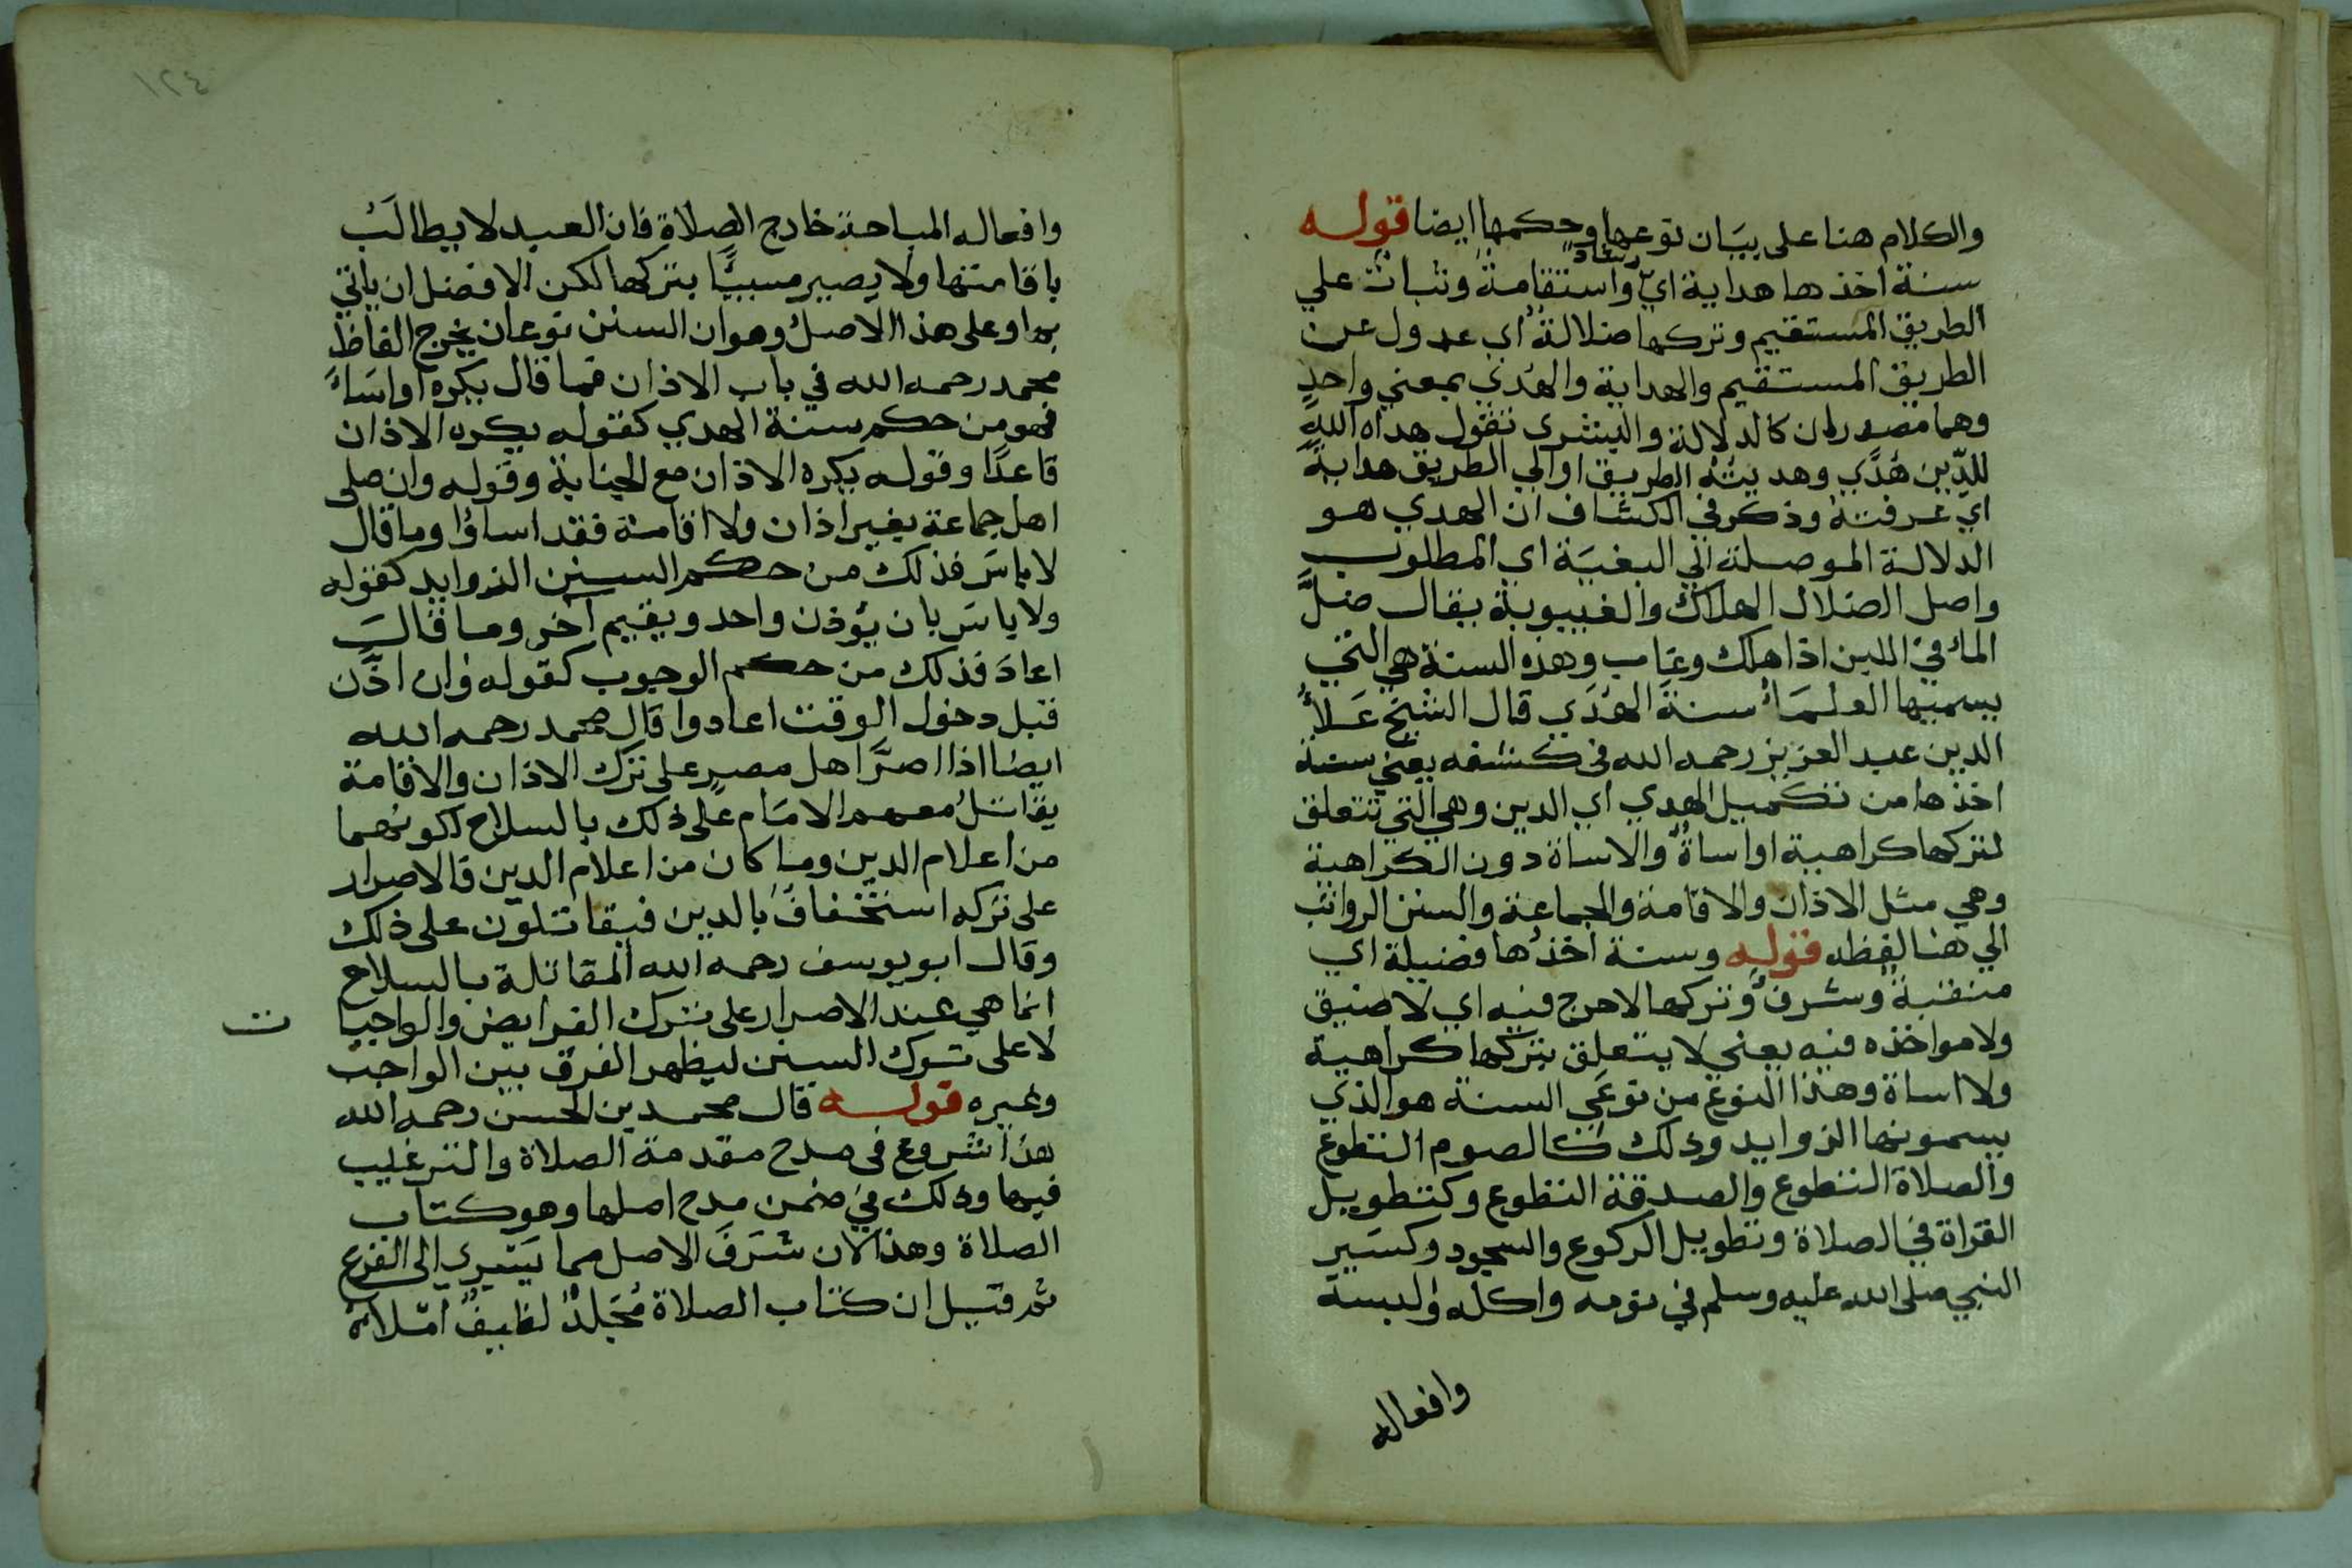 والكلام هنا على بيَان نوعها وحكمها ايضا قوله
سنة اخذها هداية اي رشاد واستقامة وثبات علي
الطريق المستقيم وتركها ضلالة اي عدول عن
الطريق المستقيم والهداية والهُدي بمعني واحدٍ
وهما مصدران كالدلالة والبشرى تقول هداه الله
للدِّين هُدًي وهديتُهُ الطريق او الي الطريق هدايةً
اي عرفته وذكر في الكشاف ان الهدي هو
الدلالة الموصلة الي البغيَة اي المطلوب
واصل الضلال الهلاك والغيبوبة يقال ضلَّ
الماء في اللبن اذا هلك وغاب وهذه السنة هي التي
يسميها العلمَاء سنةَ الهُدَي قال الشيخ عَلاء
الدين عبد العزيز رحمه الله في كشفه يعني سنة
اخذها من تكميل الهدي اي الدين وهي التي تتعلق
لتركها كراهية او اساةٌ والاساة دون الكراهية
وهي مثل الاذان والاقامة والجماعة والسنن الرواتب
الي هنا لفظه قوله وسنة اخذُها فضيلة اي
منقبةٌ وشرفٌ وتركها لا حرج فيه اي لا ضيق
ولا مواخذه فيه يعني لا يتعلق بتركها كراهية
ولا اساة وهذا النوع من نوعَي السنة هو الذي
يسمونها الزوايد وذلك كالصوم التطوع
والصلاة التطوع والصدقة التطوع وكتطويل
القراة في الصلاة وتطويل الركوع والسجود وكسَير
النبي صلى الله عليه وسلم في نومه واكله ولبسه
وافعاله
١٢٤
وافعاله المباحة خارج الصلاة فان العبد لا يطالَبُ
باقامتها ولا يصير مسيئًا بتركها لكن الافضل ان ياتي
بها وعلى هذا الاصل وهو ان السنن نوعان يخرج الفاظ
محمد رحمه الله في باب الاذان فما قال يكره او اسَاءَ
فهو من حكم سنة الهدي كقوله يكره الاذان
قاعدًا وقوله يكره الاذان مع الجنابة وقوله وان صلى
اهل جماعة بغير اذان ولا اقامة فقد اساؤا وما قال
لا باسَ فذلك من حكم السنن الزوايد كقوله
ولا باس بان يؤذن واحد ويقيم آخر وما قالَ
اعادَ فذلك من حكم الوجوب كقوله وان اذّن
قبل دخول الوقت اعادوا قال محمد رحمه الله
ايضا اذا اصرَّ اهل مصرٍ على ترك الاذان والاقامة
يقاتلُ معهم الامَام على ذلك بالسلاح لكونهما
من اعلام الدين وما كان من اعلام الدين فالاصرار
على تركه استخفاف بالدين فيقاتلون على ذلك
وقال ابو يوسف رحمه الله المقاتلة بالسلاح
انما هي عند الاصرار على ترك الفرايض والواجبا ت
لا على ترك السنن ليظهر الفرق بين الواجب
وغيره قوله قال محمد بن الحسن رحمه الله
هذا شروع في مدح مقدمة الصلاة والترغيب
فيها وذلك في ضمن مدح اصلها وهو كتاب
الصلاة وهذا لان شَرَفَ الاصل مما يَسري الى الفرع
ثم قيل ان كتاب الصلاة مُجَلدٌ لطيفٌ املاه